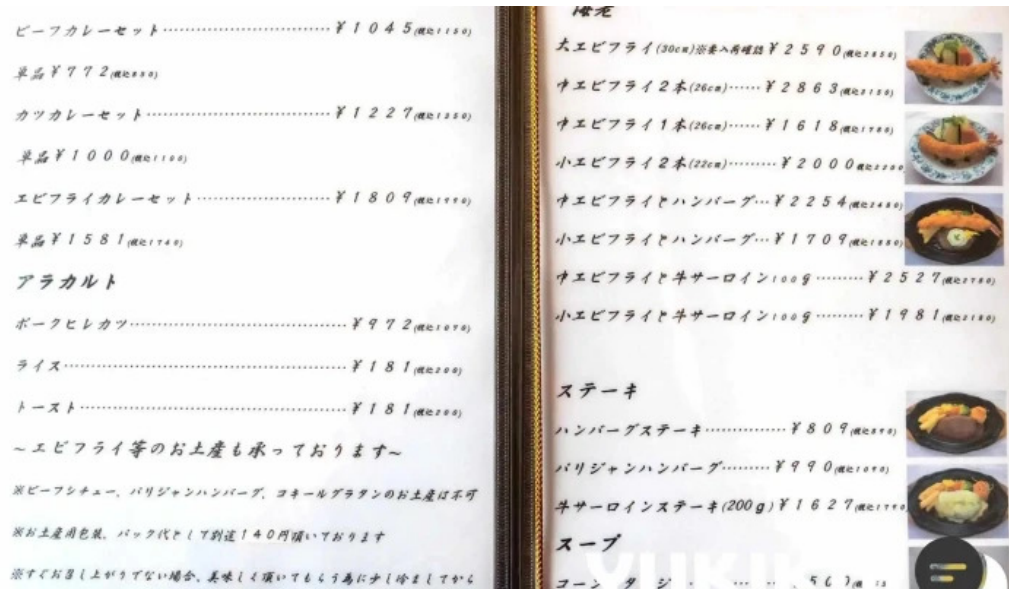 ビーフカレーセット…………………………¥1045(税込1150)
単品¥772(税込850)
カツカレーセット…………………………¥1227(税込1350)
単品¥1000(税込1100)
エビフライカレーセット…………………¥1809(税込1990)
単品¥1581(税込1740)
アラカルト
ポークヒレカツ……………………………¥972(税込1070)
ライス………………………………………¥181(税込200)
トースト……………………………………¥181(税込200)
~エビフライ等のお土産も承っております~
※ビーフシチュー、パリジャンハンバーグ、コキールグラタンのお土産は不可
※お土産用包装、パック代として別途140円頂いております
※すぐお召し上がりでない場合、美味しく頂いてもらう為に少し冷ましてから
海老
大エビフライ(30cm)※要入荷確認¥2590(税込2850)
中エビフライ2本(26cm)……¥2863(税込3150)
中エビフライ1本(26cm)……¥1618(税込1780)
小エビフライ2本(22cm)………¥2000(税込2200)
中エビフライとハンバーグ…¥2254(税込2480)
小エビフライとハンバーグ…¥1709(税込1880)
中エビフライと牛サーロイン100g………¥2527(税込2780)
小エビフライと牛サーロイン100g………¥1981(税込2180)
ステーキ
ハンバーグステーキ……………¥809(税込890)
パリジャンハンバーグ………¥990(税込1090)
牛サーロインステーキ(200g)¥1627(税込1790)
スープ